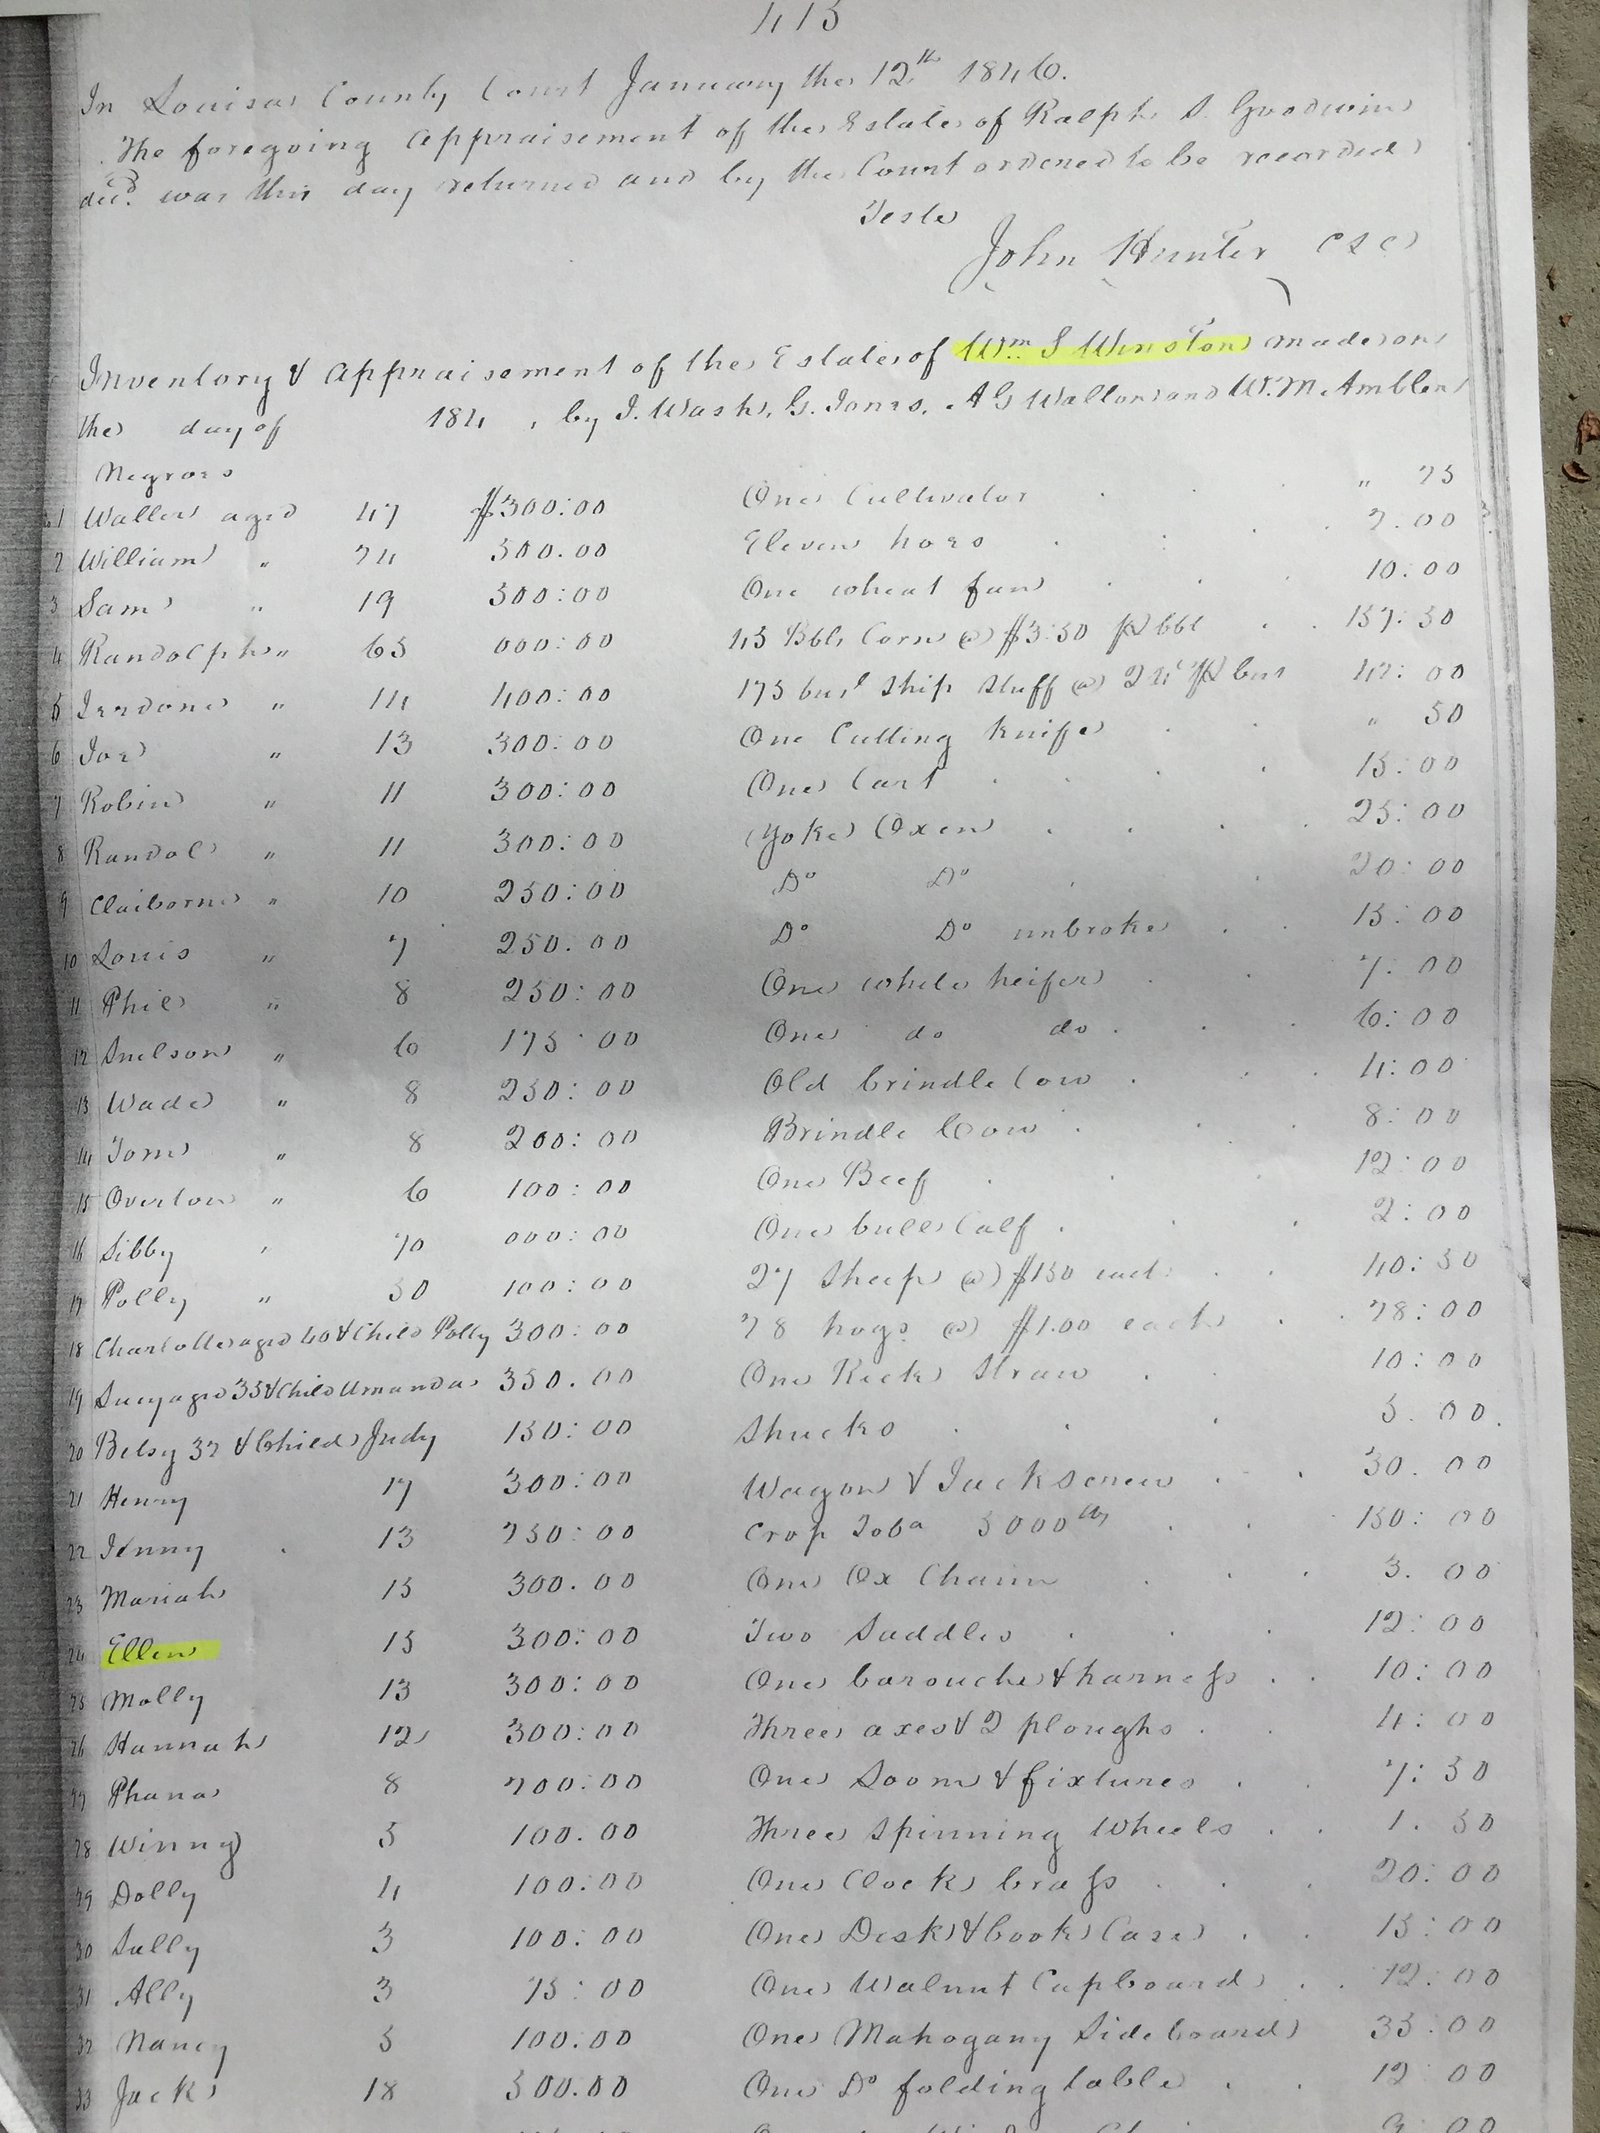 413
In Louisa County Court January the 12th 1846.
The foregoing appraisement of the Estate of Ralph S. Goodwin
decd. was this day returned and by the Court ordered to be recorded
Teste
John Hunter CLC
Inventory & appraisement of the Estate of Wm. S Winston made on
the day of 184 , by J. Wash, G. Jones, A G Waller and W. M. Ambler
Negroes
1 Waller aged 47 $300:00 One Cultivator " 75
2 William " 24 500.00 Eleven hoes 2.00
3 Sam " 19 500:00 One wheat fan 10:00
4 Randolph " 65 000:00 45 Bbls Corn @ $3.50 P bbl 157:50
5 " 14 400:00 175 busl Ship Stuff @ 24c P bus 42:00
6 Joe " 13 300:00 One Cutting Knife " 50
7 Robin " 11 300:00 One Cart 15:00
8 Randal " 11 300:00 Yoke Oxen 25:00
9 Claiborne " 10 250:00 Do Do 20:00
10 Louis " 7 250.00 Do Do unbroke 15:00
11 Phil " 8 250:00 One white heifer 7:00
12 Snelson " 6 175:00 One do do 6:00
13 Wade " 8 250:00 Old brindle Cow 4:00
14 Tom " 8 200:00 Brindle Cow 8:00
15 Overton " 6 100:00 One Beef 12:00
16 Sibby " 70 000:00 One bull Calf 2:00
17 Polly " 50 100:00 27 Sheep @ $150 each 40:50
18 Charlotte aged 40 & Child Polly 300:00 28 hogs @ $1.00 each 28:00
19 Sucy aged 35 & Child Amanda 350.00 One Rick Straw 10:00
20 Betsy 32 & Child Judy 150:00 Shucks 5.00
21 Henry 17 500:00 Wagon & Jackscrew 30.00
22 Jenny 13 250:00 Crop Toba 5000 lbs 150:00
23 Mariah 15 300.00 One Ox Chain 3.00
24 Ellen 15 300:00 Two Saddles 12:00
25 Molly 13 300:00 One barouche & harness 10:00
26 Hannah 12 300:00 Three axes & 2 ploughs 4:00
27 Phana 8 200:00 One Loom & fixtures 7:50
28 Winny 5 100.00 Three Spinning Wheels 1.50
29 Dolly 4 100:00 One Clock brass 20:00
30 Sally 3 100:00 One Desk & book Case 15:00
31 Ally 3 75:00 One Walnut Cupboard 12:00
32 Nancy 5 100:00 One Mahogany Sideboard 35:00
33 Jack 18 500.00 One Do folding table 12 00